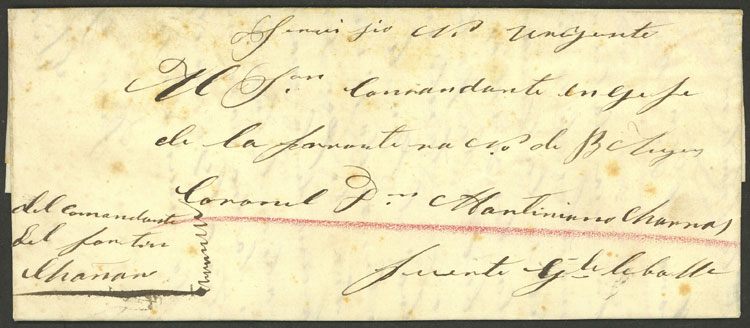 Servisio Nl Urgente
Al Sor Comandante en Gefe
de la fronte ra No. de B Ayres
Coronel Dn Mantiniano Charras
fuente Gl de Caballe
del comandante
del fortin
Chañar